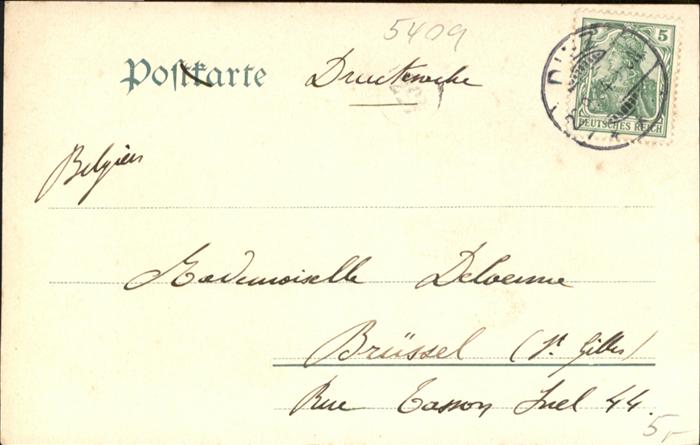 5409
Postkarte Drucksache
5
DEUTSCHES REICH
Belgien
Mademoiselle
Brüssel (St. Gilles)
Rue 44.
5,-